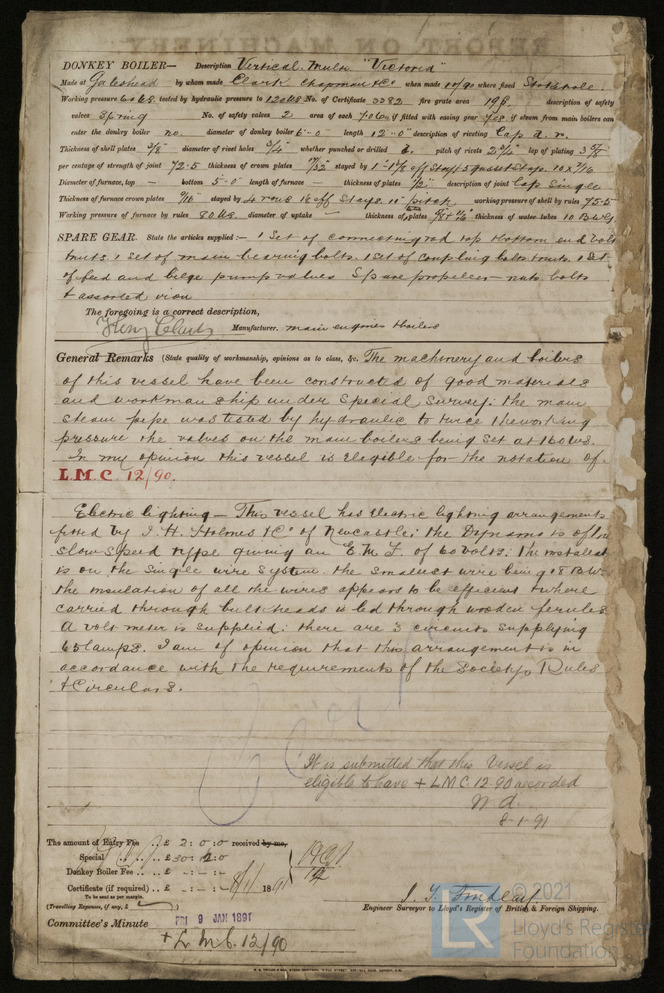 DONKEY BOILER— Description Vertical "Victoria"
Made at Gateshead by whom made Clark Chapman & Co when made 10/90 where fixed Stokehole
Working pressure 60 lbs tested by hydraulic pressure to 120 lbs No. of Certificate 3382 fire grate area 19 description of safety
valves Spring No. of safety valves 2 area of each 7.06 if fitted with easing gear yes if steam from main boilers can
enter the donkey boiler no. diameter of donkey boiler 6'-0" length 12'-0" description of riveting Lap d. r.
Thickness of shell plates diameter of rivet holes whether punched or drilled pitch of rivets lap of plating
per centage of strength of joint 72.5 thickness of crown plates stayed by
Diameter of furnace, top — bottom 5-0 length of furnace — thickness of plates description of joint Lap Single
Thickness of furnace crown plates 9/16 stayed by working pressure of shell by rules 75.5
Working pressure of furnace by rules 80 lbs. diameter of uptake — thickness of plates thickness of water tubes
SPARE GEAR. State the articles supplied:— 1 Set of connecting rod top & bottom end bolts
& nuts. 1 Set of main bearing bolts. 1 Set of coupling bolts & nuts. 1 Set
of feed and bilge pump valves Spare propeller - nuts bolts
& assorted iron
The foregoing is a correct description,
Henry Clark Manufacturer. main engines & boilers
General Remarks (State quality of workmanship, opinions as to class, &c. The machinery and boilers
of this vessel have been constructed of good materials
and workmanship under Special Survey: the main
steam pipe was tested by hydraulic to twice the working
pressure the valves on the main boilers being set at 160 lbs.
In my opinion this vessel is eligible for the notation of
L.M.C. 12/90.
Electric lighting — This vessel has Electric lighting arrangements
fitted by J. H. Holmes & Co of Newcastle; the Dynamo is of the
slow speed type giving an E. M. F. of 60 volts: the installation
is on the single wire system the smallest wire being 18 B.W.
the insulation of all the wires appears to be efficient & where
carried through bulkheads is led through wooden ferrules
A volt meter is supplied: there are 3 circuits supplying
65 lamps. I am of opinion that this arrangement is in
accordance with the requirements of the Society's Rules
& Circulars.
It is submitted that this Vessel is
eligible to have + L.M.C. 12.90 recorded
8-1-91
The amount of Entry Fee .. £ 2 : 0 : 0 received by me,
Special .. .. £ 30 : 12 : 0
Donkey Boiler Fee .. £ - : - : -
Certificate (if required) .. £ - : - : - 8/1/ 1891
To be sent as per margin.
(Travelling Expenses, if any, £ )
Engineer Surveyor to Lloyd's Register of British & Foreign Shipping.
Committee's Minute FRI 9 JAN 1891
+ L.M.C. 12/90
© 2021
Lloyd's Register
Foundation